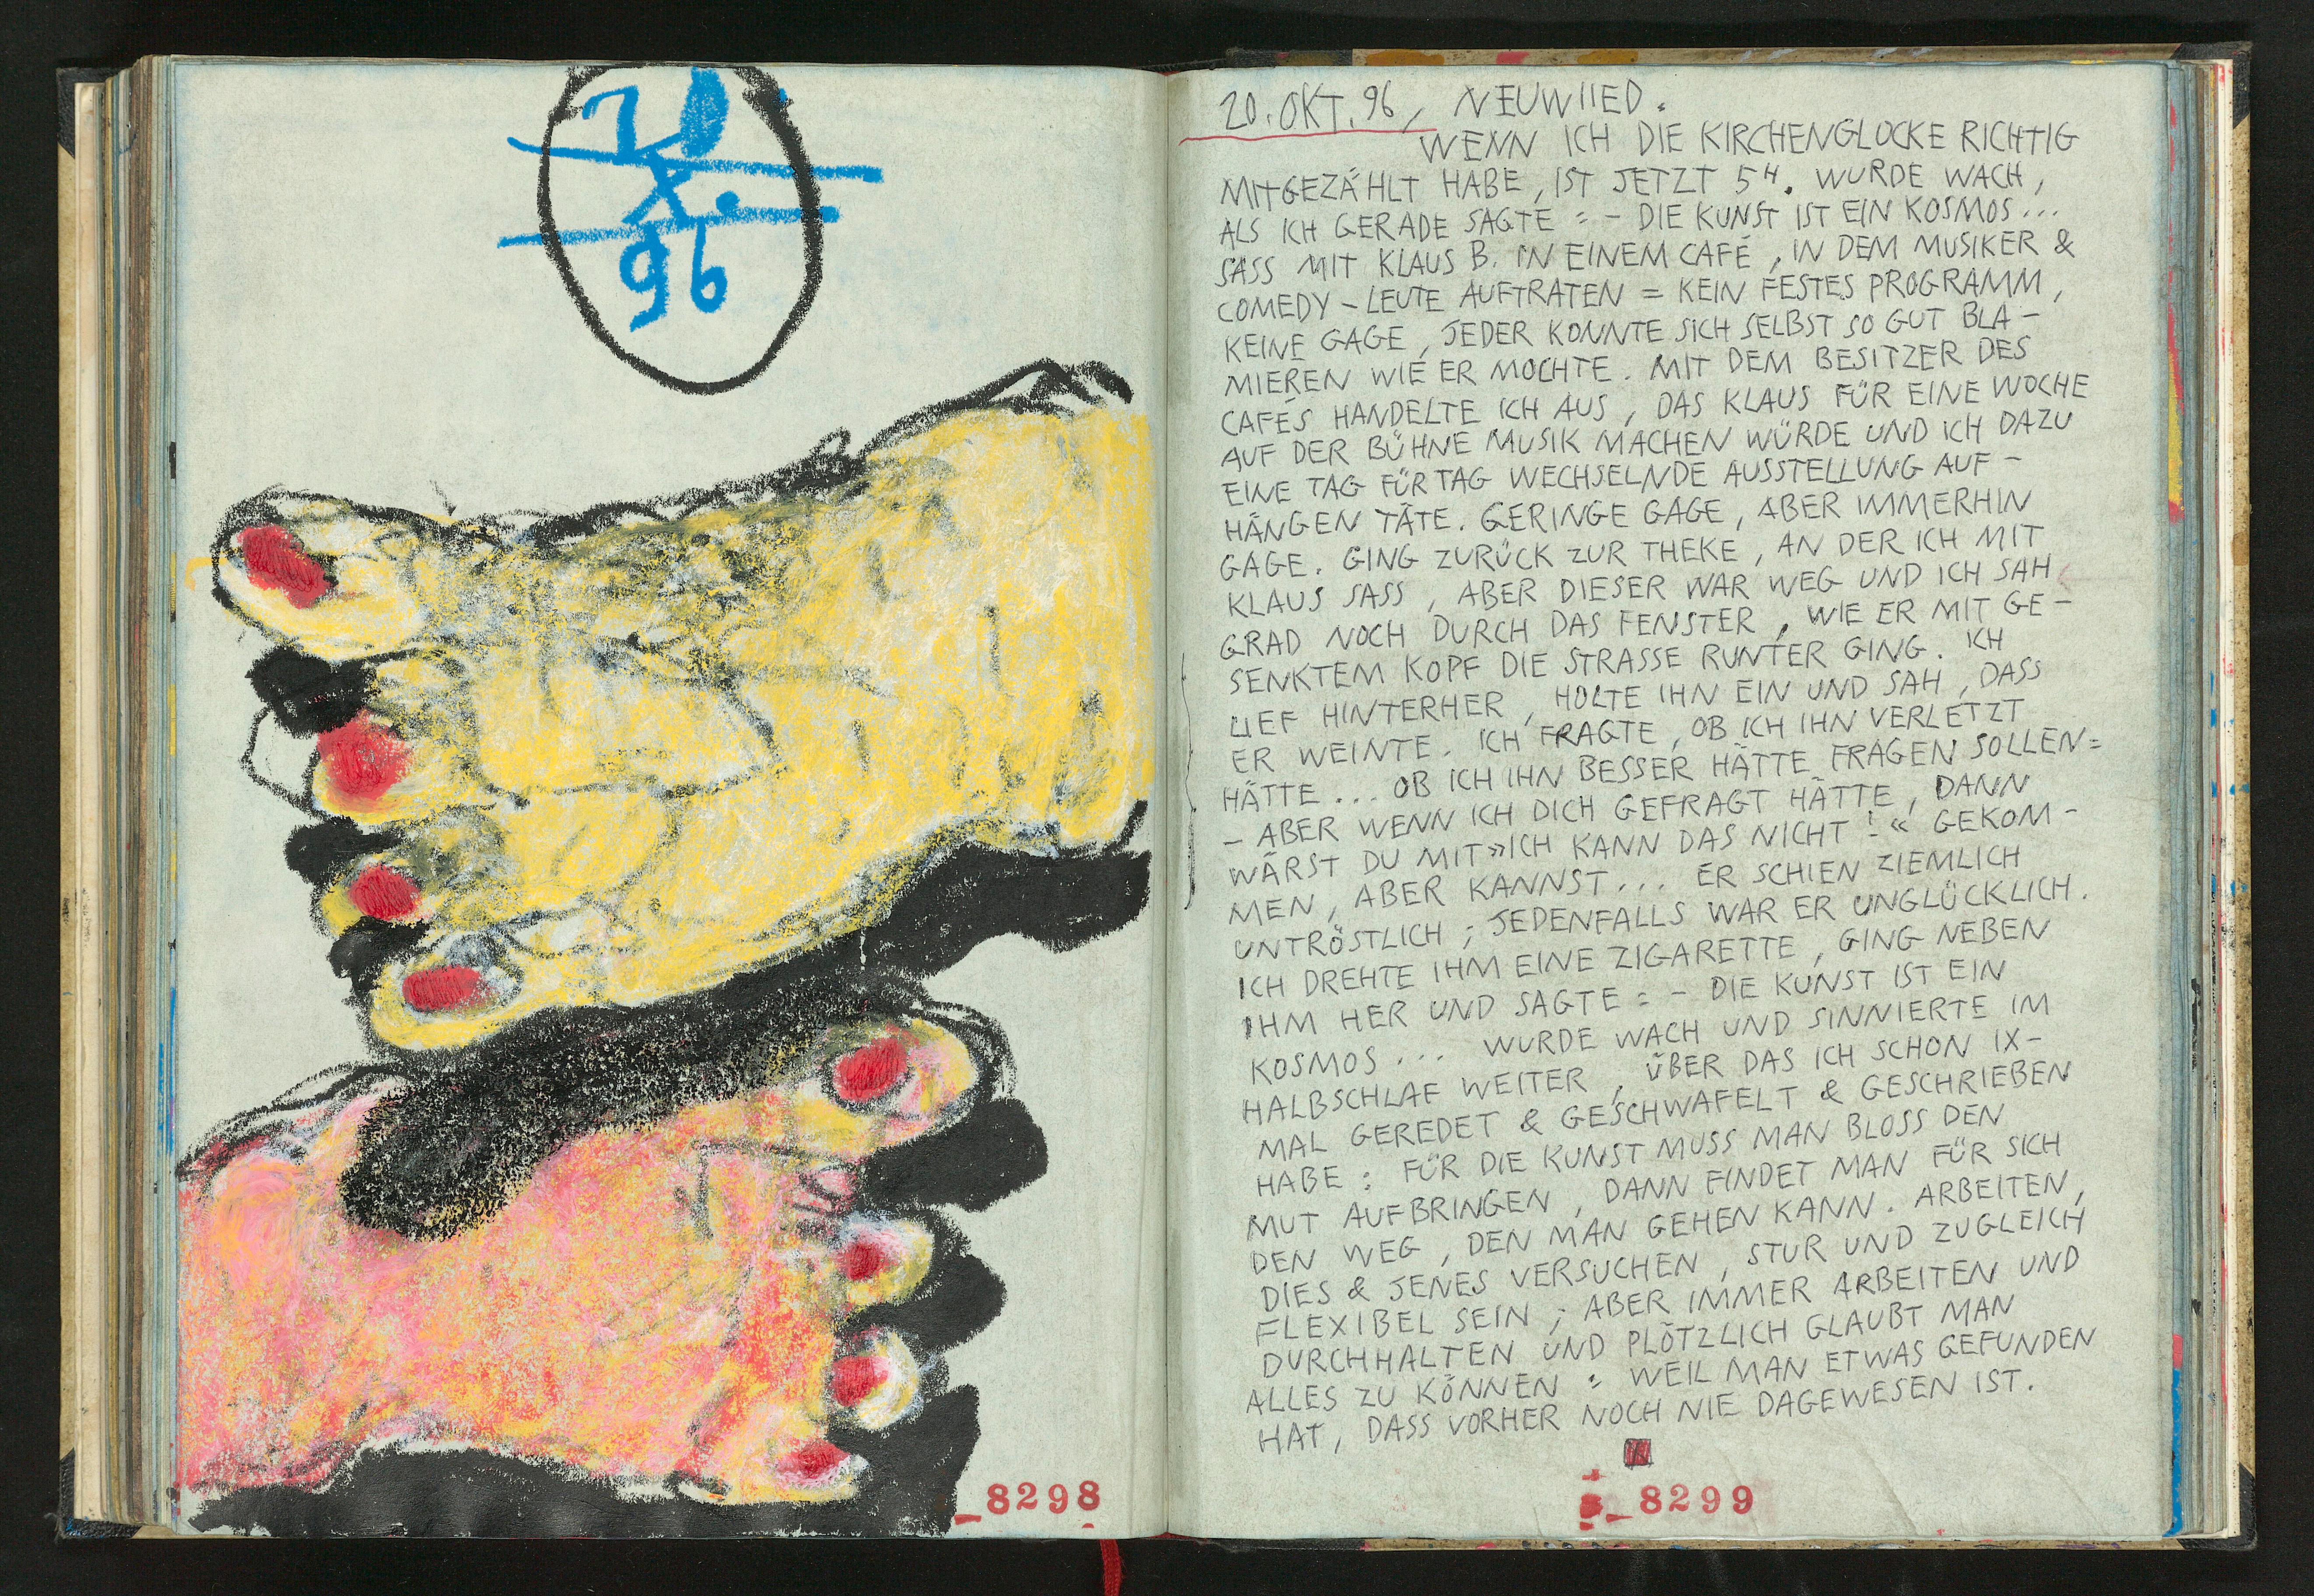 20
X.
96
8298
20. OKT. 96, NEUWIIED.
WENN ICH DIE KIRCHENGLOCKE RICHTIG
MITGEZÄHLT HABE, IST JETZT 5H. WURDE WACH,
ALS ICH GERADE SAGTE = – DIE KUNST IST EIN KOSMOS...
SASS MIT KLAUS B. IN EINEM CAFÉ, IN DEM MUSIKER &
COMEDY – LEUTE AUFTRATEN = KEIN FESTES PROGRAMM,
KEINE GAGE, JEDER KONNTE SICH SELBST SO GUT BLA –
MIEREN WIE ER MOCHTE. MIT DEM BESITZER DES
CAFÉS HANDELTE ICH AUS, DAS KLAUS FÜR EINE WOCHE
AUF DER BÜHNE MUSIK MACHEN WÜRDE UND ICH DAZU
EINE TAG FÜR TAG WECHSELNDE AUSSTELLUNG AUF –
HÄNGEN TÄTE. GERINGE GAGE, ABER IMMERHIN
GAGE. GING ZURÜCK ZUR THEKE, AN DER ICH MIT
KLAUS SASS, ABER DIESER WAR WEG UND ICH SAH
GRAD NOCH DURCH DAS FENSTER, WIE ER MIT GE –
SENKTEM KOPF DIE STRASSE RUNTER GING. ICH
LIEF HINTERHER, HOLTE IHN EIN UND SAH, DASS
ER WEINTE. ICH FRAGTE, OB ICH IHN VERLETZT
HÄTTE... OB ICH IHN BESSER HÄTTE FRAGEN SOLLEN =
– ABER WENN ICH DICH GEFRAGT HÄTTE, DANN
WÄRST DU MIT »ICH KANN DAS NICHT!« GEKOM –
MEN, ABER KANNST... ER SCHIEN ZIEMLICH
UNTRÖSTLICH; JEDENFALLS WAR ER UNGLÜCKLICH.
ICH DREHTE IHM EINE ZIGARETTE, GING NEBEN
IHM HER UND SAGTE = – DIE KUNST IST EIN
KOSMOS... WURDE WACH UND SINNIERTE IM
HALBSCHLAF WEITER, ÜBER DAS ICH SCHON IX –
MAL GEREDET & GESCHWAFELT & GESCHRIEBEN
HABE: FÜR DIE KUNST MUSS MAN BLOSS DEN
MUT AUFBRINGEN, DANN FINDET MAN FÜR SICH
DEN WEG, DEN MAN GEHEN KANN. ARBEITEN,
DIES & JENES VERSUCHEN, STUR UND ZUGLEICH
FLEXIBEL SEIN; ABER IMMER ARBEITEN UND
DURCHHALTEN UND PLÖTZLICH GLAUBT MAN
ALLES ZU KÖNNEN = WEIL MAN ETWAS GEFUNDEN
HAT, DASS VORHER NOCH NIE DAGEWESEN IST.
8299